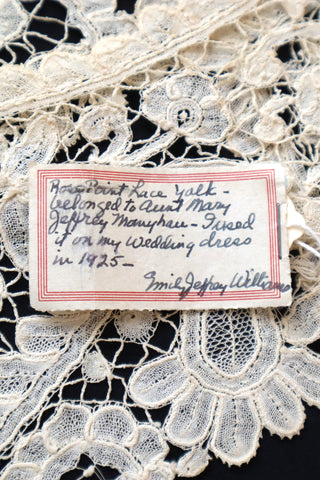 Rose Point Lace Yalk -
belonged to Aunt Mary
Jeffrey Monyhan - I used
it on my Wedding dress
in 1925 -
Emily Jeffrey Williams